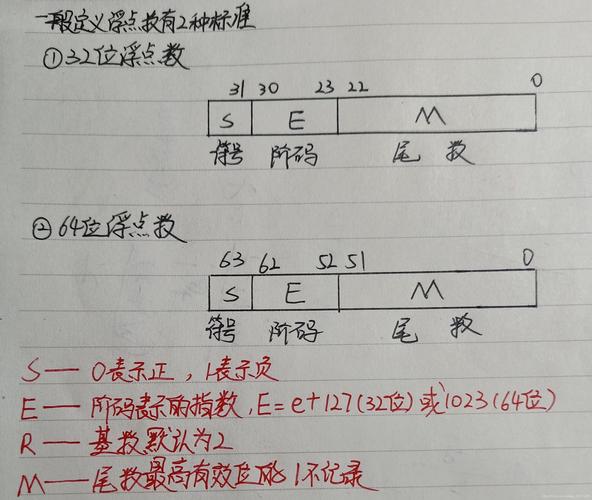 一般定义浮点数有2种标准
①32位浮点数
31 30 23 22 0
S E M
符号 阶码 尾数
②64位浮点数
63 62 52 51 0
S E M
符号 阶码 尾数
S — 0表示正，1表示负
E — 阶码表示的指数，E=e+127(32位)或1023(64位)
R — 基数默认为2
M — 尾数最高有效位的1不记录